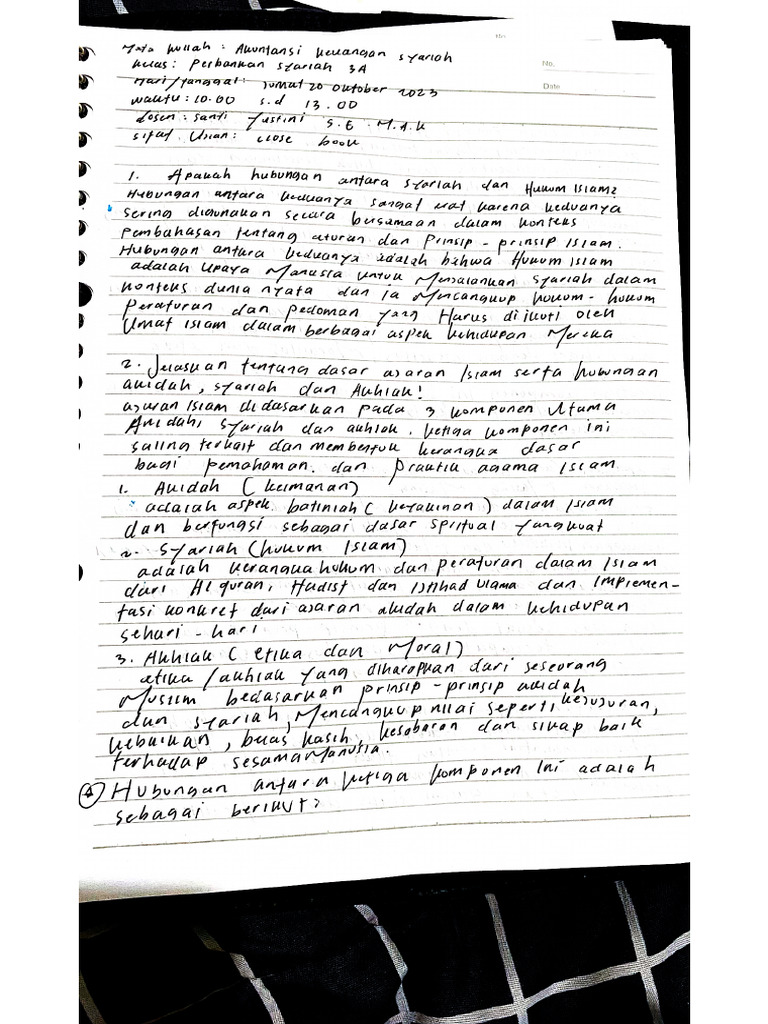 No.
No.
Date
Mata kuliah : Akuntansi keuangan syariah
kelas : Perbankan syariah 3A
Hari/tanggal : Jumat 20 Oktober 2023
waktu : 10.00 s.d 13.00
dosen : Santi Yustini S.E M.A.k
sifat Ujian : close book
1. Apakah hubungan antara syariah dan Hukum Islam?
Hubungan antara keduanya sangat erat karena keduanya
sering digunakan secara bersamaan dalam konteks
pembahasan tentang aturan dan Prinsip - prinsip Islam.
Hubungan antara keduanya adalah bahwa Hukum Islam
adalah upaya Manusia untuk Menjalankan syariah dalam
konteks dunia nyata dan ia Mencangkup hukum - hukum
Peraturan dan pedoman yang Harus diikuti oleh
Umat Islam dalam berbagai aspek kehidupan Mereka
2. Jelaskan tentang dasar ajaran Islam serta hubungan
akidah, syariah dan Akhlak!
ajaran Islam didasarkan pada 3 komponen Utama
Akidah, syariah dan akhlak. ketiga komponen ini
saling terkait dan membentuk kerangka dasar
bagi pemahaman. dan praktik agama Islam
1. Akidah (keimanan)
adalah aspek batiniah (keyakinan) dalam Islam
dan berfungsi sebagai dasar spritual yang kuat
2. Syariah (hukum Islam)
adalah kerangka hukum dan peraturan dalam Islam
dari Al quran, Hadist dan ijtihad ulama dan Implemen-
tasi konkret dari ajaran akidah dalam kehidupan
sehari - hari
3. Akhlak (etika dan Moral)
etika / akhlak yang diharapkan dari seseorang
Muslim bedasarkan prinsip - prinsip akidah
dan syariah, Mencangkup nilai seperti, kejujuran,
kebaikan, belas kasih, kesabaran dan sikap baik
terhadap sesama Manusia.
Hubungan antara ketiga komponen ini adalah
sebagai berikut :